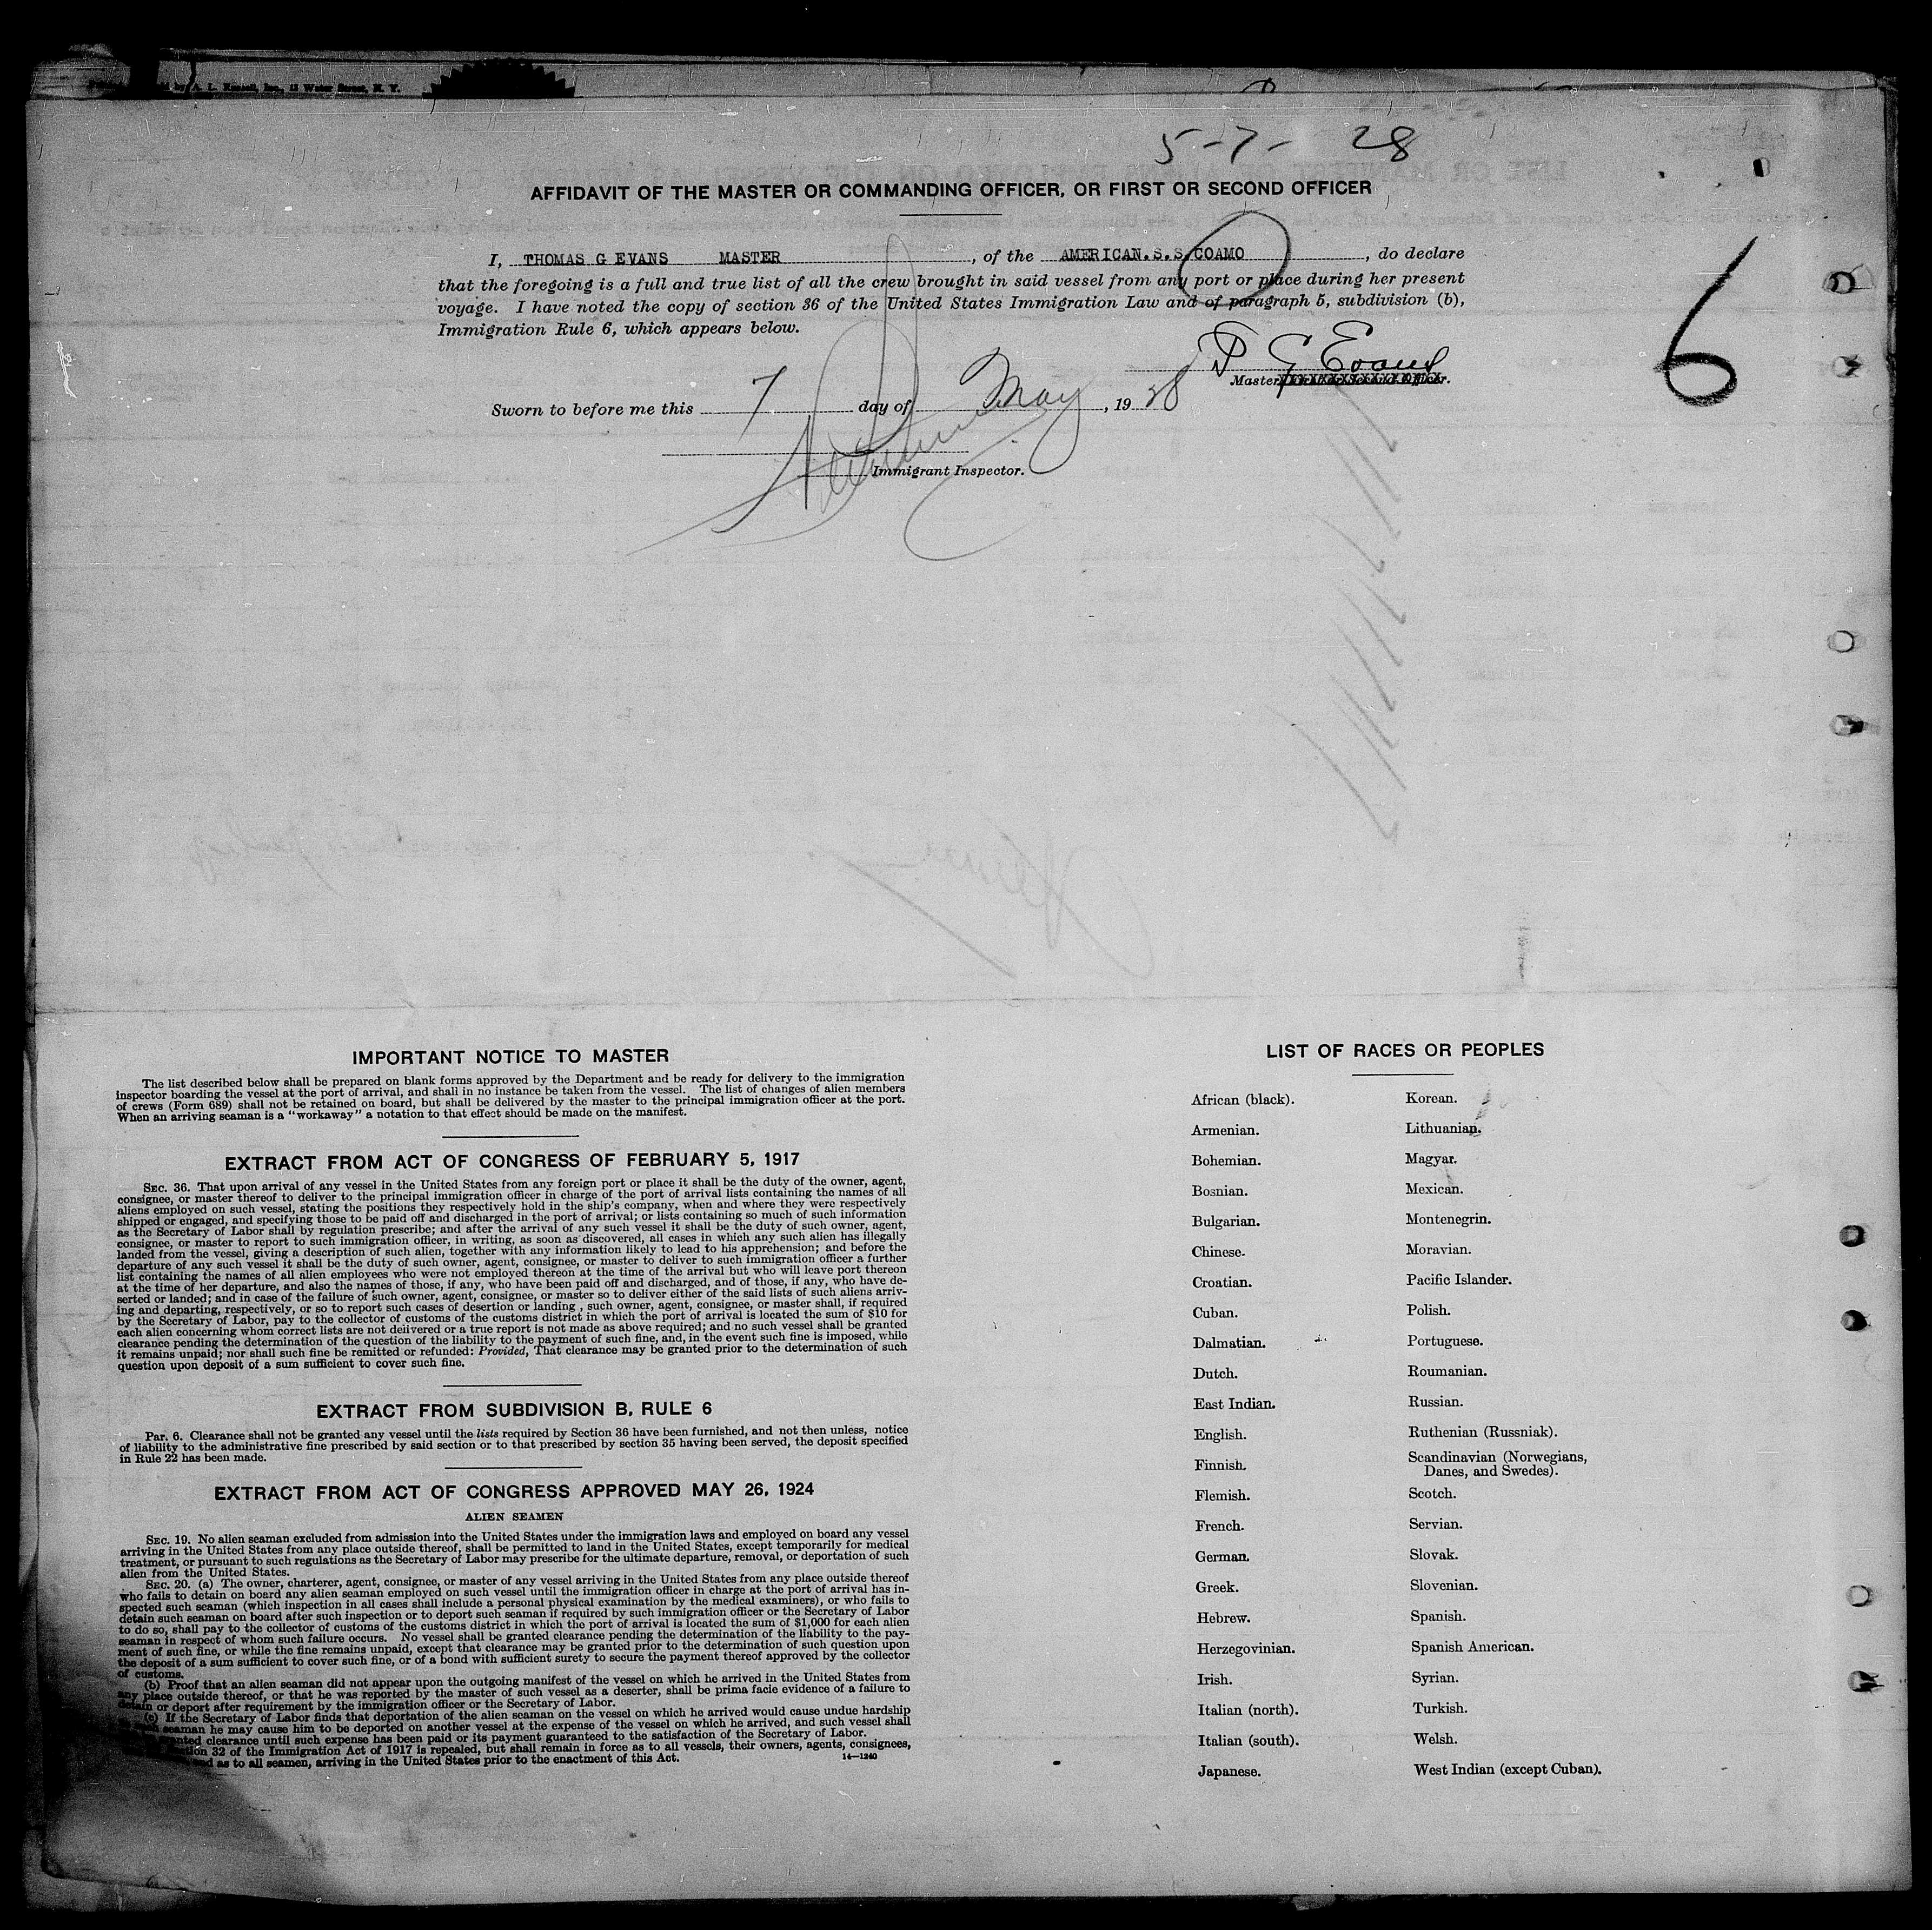 by A. L. Russell, Inc., 12 Water Street, N. Y.
5-7- 28
AFFIDAVIT OF THE MASTER OR COMMANDING OFFICER, OR FIRST OR SECOND OFFICER
I, THOMAS G EVANS MASTER, of the AMERICAN.S.S.COAMO, do declare
that the foregoing is a full and true list of all the crew brought in said vessel from any port or place during her present
voyage. I have noted the copy of section 36 of the United States Immigration Law and of paragraph 5, subdivision (b),
Immigration Rule 6, which appears below.
T G Evans
Master
6
Sworn to before me this 7 day of May, 1928
Immigrant Inspector.
IMPORTANT NOTICE TO MASTER
The list described below shall be prepared on blank forms approved by the Department and be ready for delivery to the immigration
inspector boarding the vessel at the port of arrival, and shall in no instance be taken from the vessel. The list of changes of alien members
of crews (Form 689) shall not be retained on board, but shall be delivered by the master to the principal immigration officer at the port.
When an arriving seaman is a "workaway" a notation to that effect should be made on the manifest.
EXTRACT FROM ACT OF CONGRESS OF FEBRUARY 5, 1917
SEC. 36. That upon arrival of any vessel in the United States from any foreign port or place it shall be the duty of the owner, agent,
consignee, or master thereof to deliver to the principal immigration officer in charge of the port of arrival lists containing the names of all
aliens employed on such vessel, stating the positions they respectively hold in the ship's company, when and where they were respectively
shipped or engaged, and specifying those to be paid off and discharged in the port of arrival; or lists containing so much of such information
as the Secretary of Labor shall by regulation prescribe; and after the arrival of any such vessel it shall be the duty of such owner, agent,
consignee, or master to report to such immigration officer, in writing, as soon as discovered, all cases in which any such alien has illegally
landed from the vessel, giving a description of such alien, together with any information likely to lead to his apprehension; and before the
departure of any such vessel it shall be the duty of such owner, agent, consignee, or master to deliver to such immigration officer a further
list containing the names of all alien employees who were not employed thereon at the time of the arrival but who will leave port thereon
at the time of her departure, and also the names of those, if any, who have been paid off and discharged, and of those, if any, who have de-
serted or landed; and in case of the failure of such owner, agent, consignee, or master so to deliver either of the said lists of such aliens arriv-
ing and departing, respectively, or so to report such cases of desertion or landing , such owner, agent, consignee, or master shall, if required
by the Secretary of Labor, pay to the collector of customs of the customs district in which the port of arrival is located the sum of $10 for
each alien concerning whom correct lists are not delivered or a true report is not made as above required; and no such vessel shall be granted
clearance pending the determination of the question of the liability to the payment of such fine, and, in the event such fine is imposed, while
it remains unpaid; nor shall such fine be remitted or refunded: Provided, That clearance may be granted prior to the determination of such
question upon deposit of a sum sufficient to cover such fine.
EXTRACT FROM SUBDIVISION B, RULE 6
Par. 6. Clearance shall not be granted any vessel until the lists required by Section 36 have been furnished, and not then unless, notice
of liability to the administrative fine prescribed by said section or to that prescribed by section 35 having been served, the deposit specified
in Rule 22 has been made.
EXTRACT FROM ACT OF CONGRESS APPROVED MAY 26, 1924
ALIEN SEAMEN
SEC. 19. No alien seaman excluded from admission into the United States under the immigration laws and employed on board any vessel
arriving in the United States from any place outside thereof, shall be permitted to land in the United States, except temporarily for medical
treatment, or pursuant to such regulations as the Secretary of Labor may prescribe for the ultimate departure, removal, or deportation of such
alien from the United States.
SEC. 20. (a) The owner, charterer, agent, consignee, or master of any vessel arriving in the United States from any place outside thereof
who fails to detain on board any alien seaman employed on such vessel until the immigration officer in charge at the port of arrival has in-
spected such seaman (which inspection in all cases shall include a personal physical examination by the medical examiners), or who fails to
detain such seaman on board after such inspection or to deport such seaman if required by such immigration officer or the Secretary of Labor
to do so, shall pay to the collector of customs of the customs district in which the port of arrival is located the sum of $1,000 for each alien
seaman in respect of whom such failure occurs. No vessel shall be granted clearance pending the determination of the liability to the pay-
ment of such fine, or while the fine remains unpaid, except that clearance may be granted prior to the determination of such question upon
the deposit of a sum sufficient to cover such fine, or of a bond with sufficient surety to secure the payment thereof approved by the collector
of customs.
(b) Proof that an alien seaman did not appear upon the outgoing manifest of the vessel on which he arrived in the United States from
any place outside thereof, or that he was reported by the master of such vessel as a deserter, shall be prima facie evidence of a failure to
detain or deport after requirement by the immigration officer or the Secretary of Labor.
(c) If the Secretary of Labor finds that deportation of the alien seaman on the vessel on which he arrived would cause undue hardship
seaman he may cause him to be deported on another vessel at the expense of the vessel on which he arrived, and such vessel shall
granted clearance until such expense has been paid or its payment guaranteed to the satisfaction of the Secretary of Labor.
Section 32 of the Immigration Act of 1917 is repealed, but shall remain in force as to all vessels, their owners, agents, consignees,
and as to all seamen, arriving in the United States prior to the enactment of this Act.
14—1240
LIST OF RACES OR PEOPLES
African (black).
Armenian.
Bohemian.
Bosnian.
Bulgarian.
Chinese.
Croatian.
Cuban.
Dalmatian.
Dutch.
East Indian.
English.
Finnish.
Flemish.
French.
German.
Greek.
Hebrew.
Herzegovinian.
Irish.
Italian (north).
Italian (south).
Japanese.
Korean.
Lithuanian.
Magyar.
Mexican.
Montenegrin.
Moravian.
Pacific Islander.
Polish.
Portuguese.
Roumanian.
Russian.
Ruthenian (Russniak).
Scandinavian (Norwegians,
Danes, and Swedes).
Scotch.
Servian.
Slovak.
Slovenian.
Spanish.
Spanish American.
Syrian.
Turkish.
Welsh.
West Indian (except Cuban).